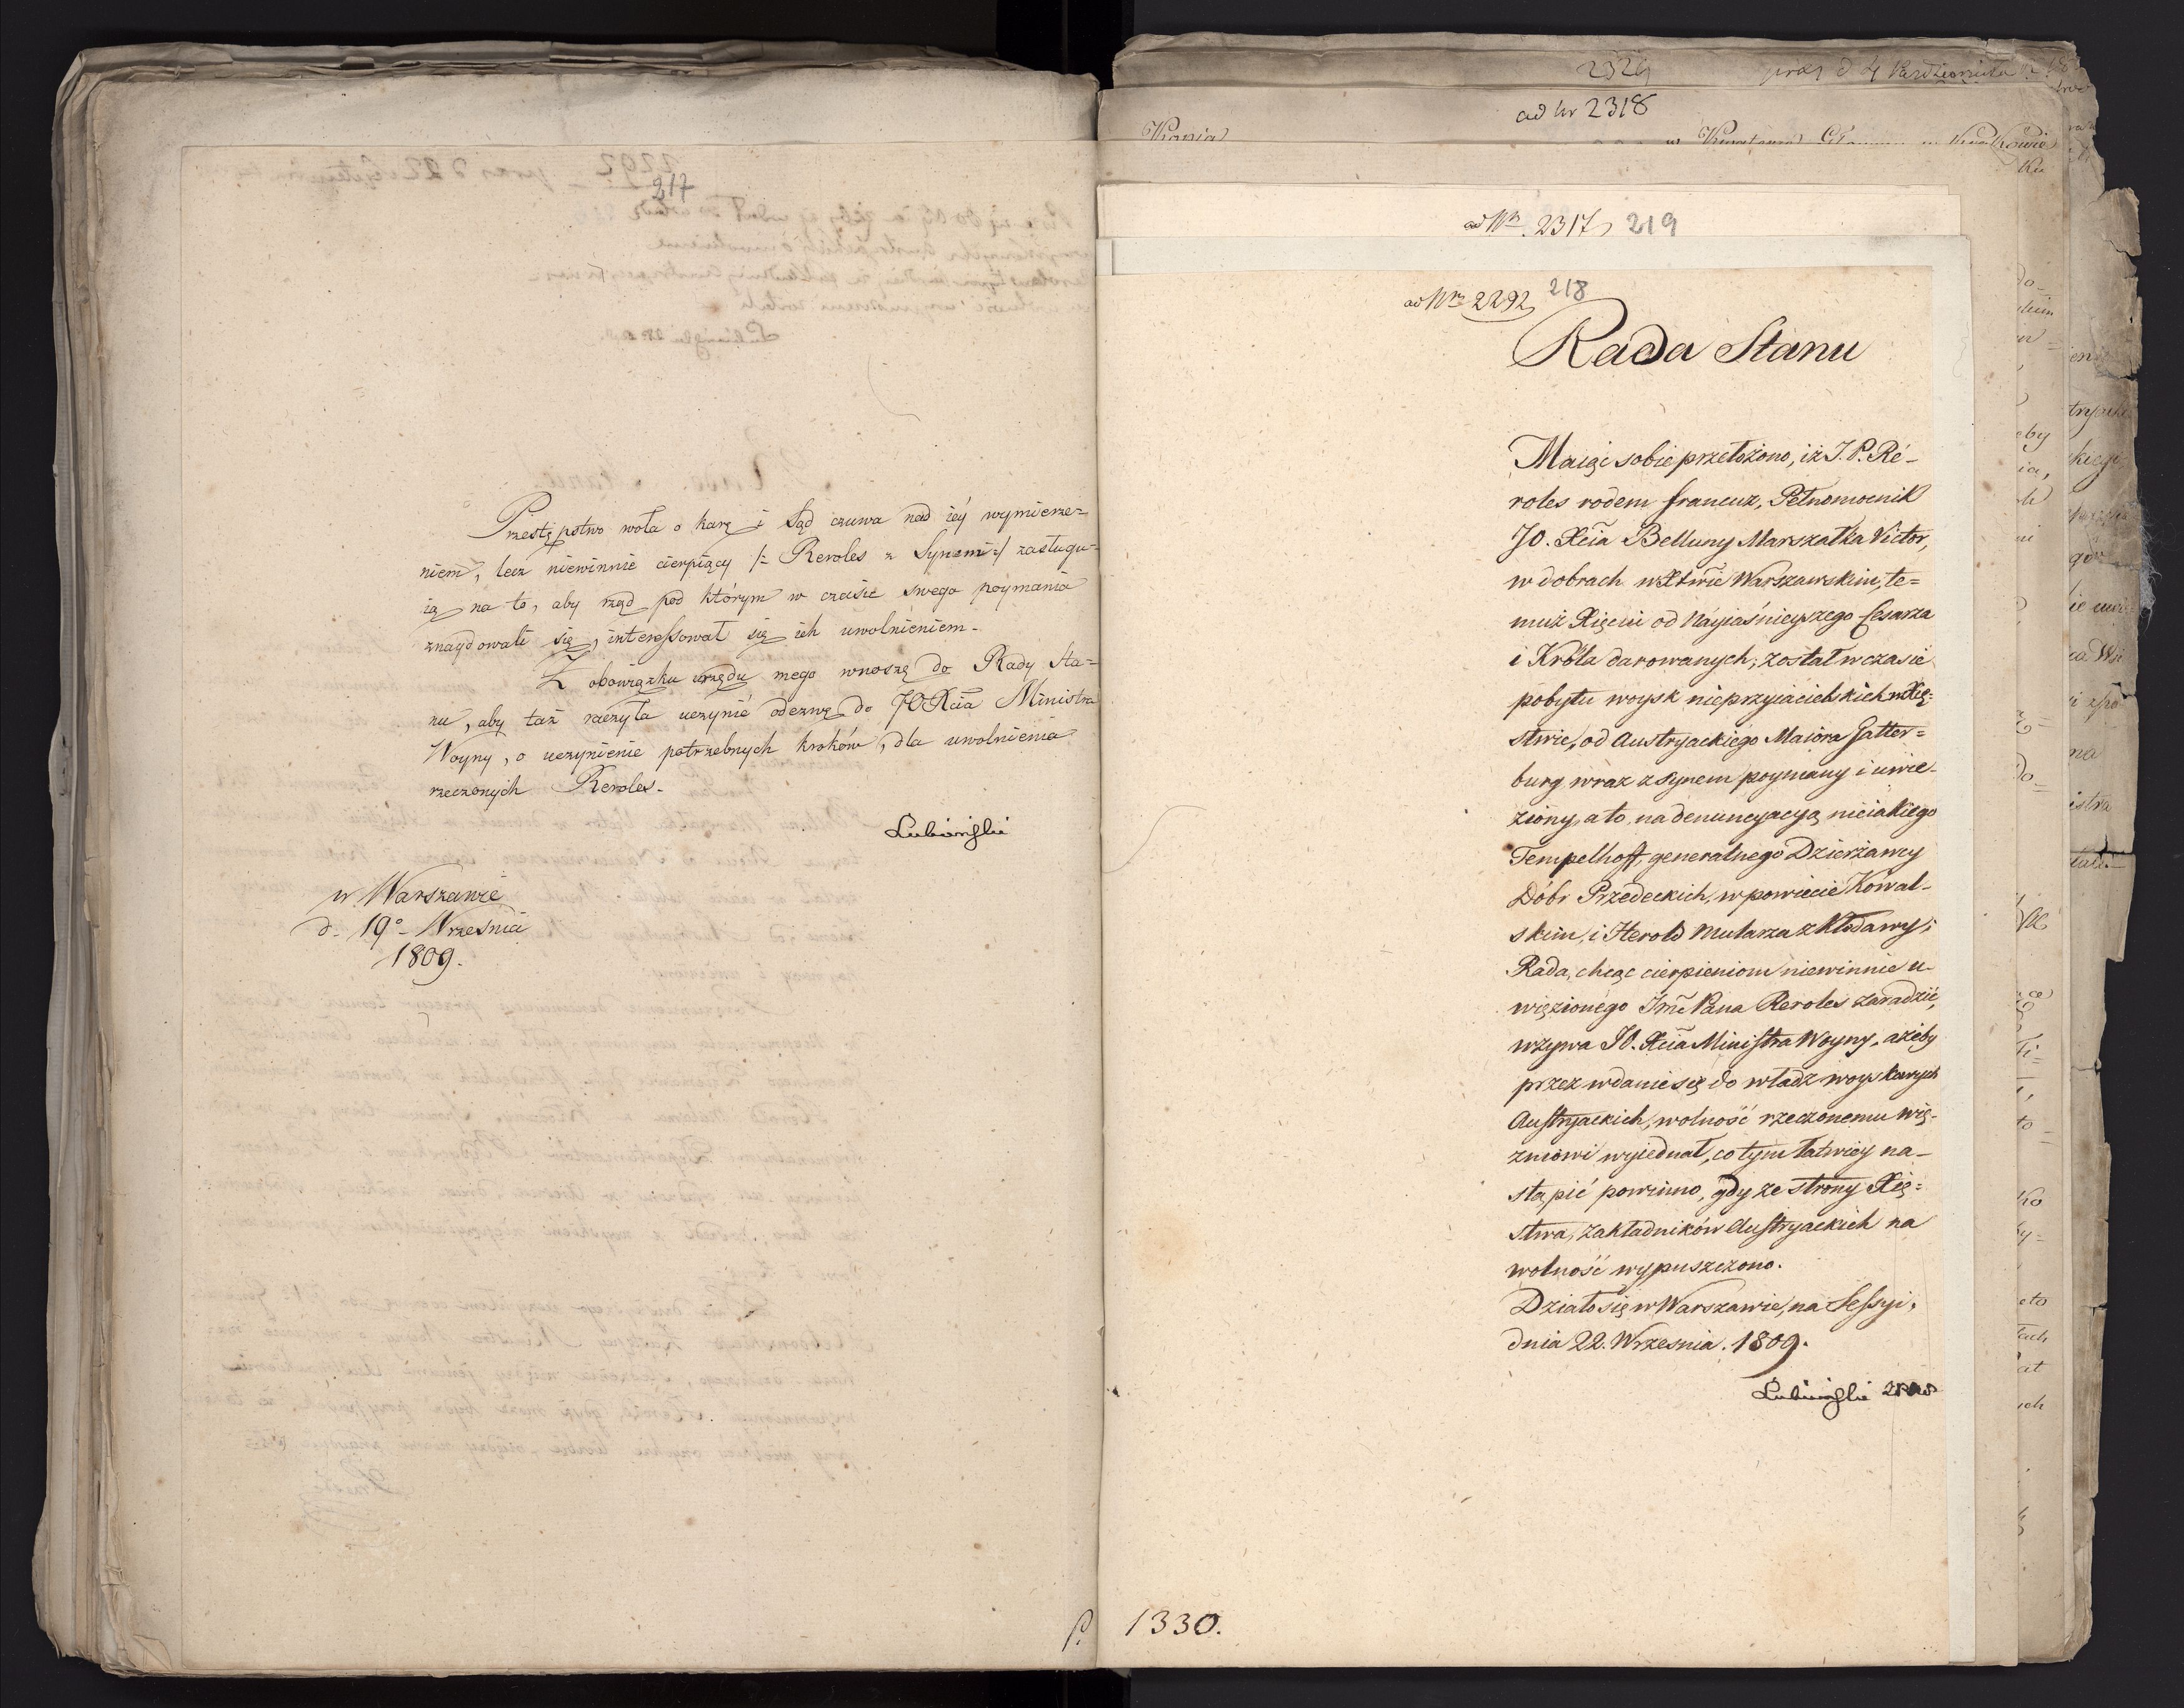 217
Przestępstwo woła o karę i Sąd czuwa nad iéy wymierze=
niem, lecz niewinnie cierpiący /: Reroles z Synem :/ zasługu=
ią na to, aby rząd pod którym w czasie swego poymania
znaydowali się, interessował się ich uwolnieniem.
Z obowiązku urzędu mego wnoszę do Rady Sta=
nu, aby taż raczyła uczynić odezwę do JO Xcia Ministra
Woyny, o uczynienie potrzebnych kroków, dla uwolnienia
rzeczonych Reroles.
Lubieński
w Warszawie
d. 19o Września
1809.
2329
ad Nr 2318
Kopia
ad Nr. 2317 219
ad Nr 2292 218
Rada Stanu
Maiąc sobie przełożono, iż J. P. Ré-
roles rodem francuz, Pełnomocnik
JO. Xcia Belluny Marszałka Victor,
w dobrach w Xtwie Warszawskim, te=
muż Xięciu od Nayiaśnieyszego Cesarza
i Króla darowanych; został w czasie
pobytu woysk nieprzyiacielskich w Xię-
stwie, od Austryackiego Maiora Gatter=
burg wraz z synem poymany i uwię-
ziony, a to, na denuncyacyą nieiakiego
Tempelhoff, generalnego Dzierżawcy
Dóbr Przedeckich, w powiecie Kowal-
skim, i Herold Mularza z Kłodawy;
Rada, chcąc cierpieniom niewinnie u-
więzionego Jmć Pana Reroles zaradzić,
wzywa JO. Xcia Ministra Woyny, ażeby
przez wdanie się do władz woyskowych
Austryackich, wolność rzeczonemu wię-
zniowi wyiednał, co tym łatwiéy na-
stąpić powinno, gdy ze strony Xię=
stwa, zakładników Austryackich na
wolność wypuszczono.
Działo się w Warszawie, na Sessyi,
dnia 22. Września. 1809.
Lubieński
1330.